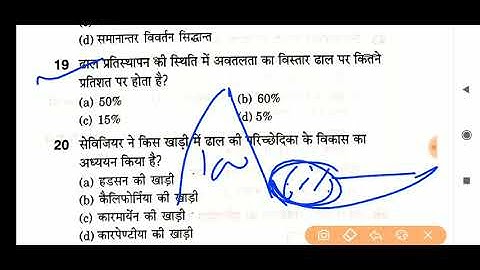 (d) समानान्तर विवर्तन सिद्धान्त
19 ढाल प्रतिस्थापन की स्थिति में अवतलता का विस्तार ढाल पर कितने
प्रतिशत पर होता है?
(a) 50% (b) 60%
(c) 15% (d) 5%
20 सेविजियर ने किस खाड़ी में ढाल की परिच्छेदिका के विकास का
अध्ययन किया है?
(a) हडसन की खाड़ी
(b) कैलिफोर्निया की खाड़ी
(c) कारमार्थेन की खाड़ी
(d) कारपेण्टीया की खाड़ी